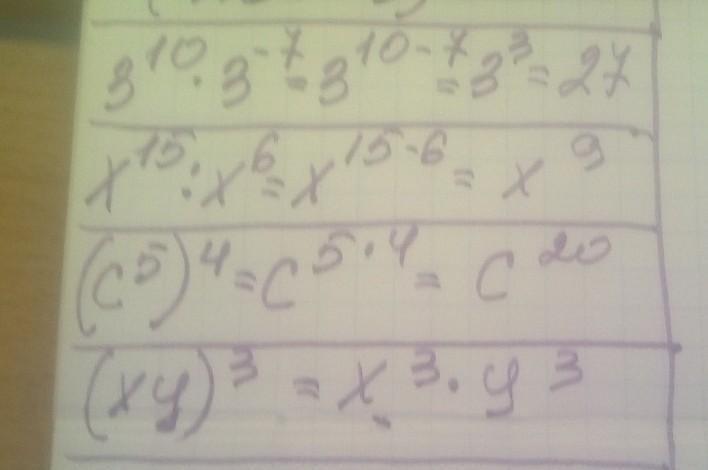 3¹⁰ · 3⁻⁷ = 3¹⁰⁻⁷ = 3³ = 27
x¹⁵ : x⁶ = x¹⁵⁻⁶ = x⁹
(c⁵)⁴ = c⁵·⁴ = c²⁰
(xy)³ = x³ · y³